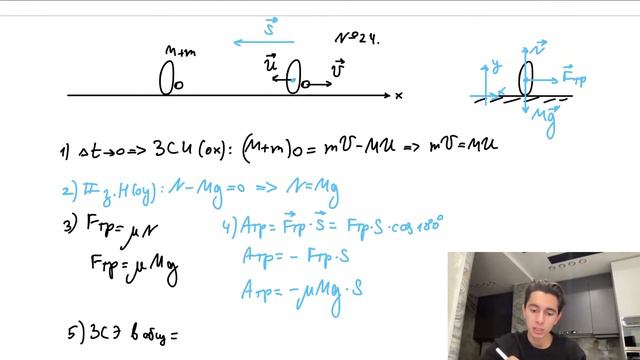 S⃗
№24.
M+m
U⃗ V⃗
x
N⃗
y
F⃗тр
x
Mg⃗
1) Δt→0 => ЗСИ(ox): (M+m)0 = mV-MU => mV=MU
2) IIз.Н(oy): N-Mg=0 => N=Mg
3) Fтр=μN
Fтр=μMg
4) Aтр=F⃗тр·S⃗=Fтр·S·cos180°
Aтр=-Fтр·S
Aтр=-μMg·S
5) ЗСЭ в общ=